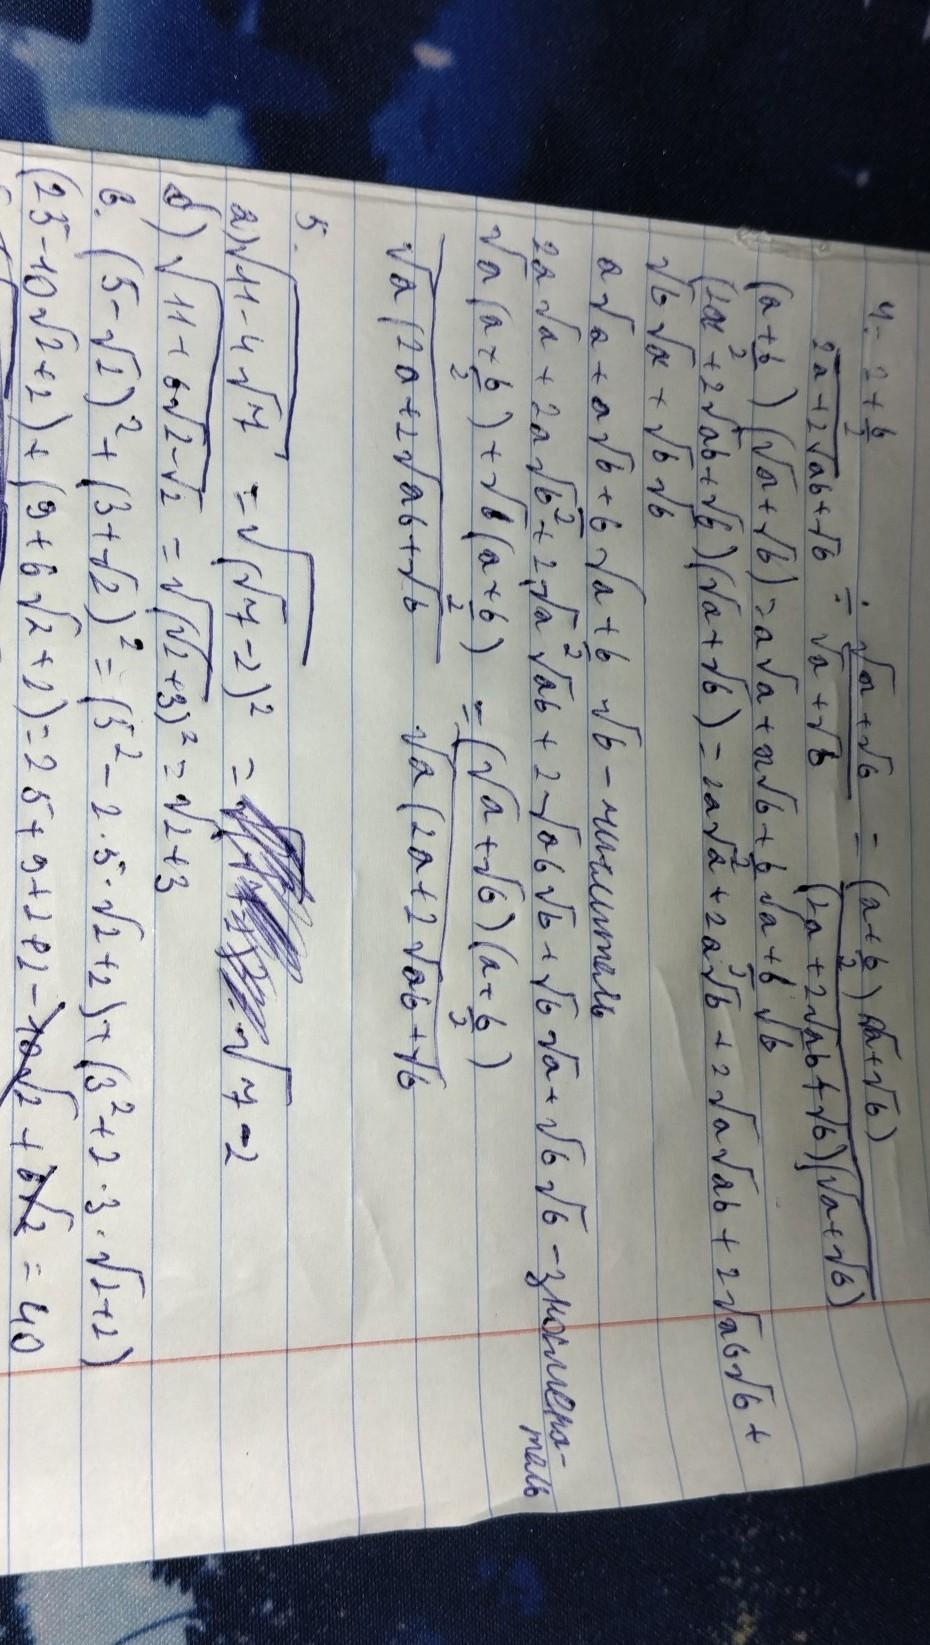 4. 2+b/2 : √a+√b = (a+b/2)(√a+√b)
2a+2√ab+√b = √a+√b (2a+2√ab+√b)(√a+√b)
(a+b/2)(√a+√b)=a√a+a√b+b/2√a+b/2√b
(2a²+2√ab+√b)(√a+√b)=2a√a²+2a²√b+2√a√ab+2√ab√b+
√b√a+√b√b
a√a+a√b+b√a+b√b-числитель
2a√a+2a√b²+2√a²√ab+2√ab√b+√b√a+√b√b-знаменатель
√a(a+b/2)+√b(a+b/2) = (√a+√b)(a+b/2)
√a(2a+2√ab+√b √a(2a+2√ab+√b
5.
а)√11-4√7 = √(√7-2)² = √7-2
б)√11+6√2-√2 = √(√2+3)² = √2+3
в. (5-√2)²+(3+√2)²=(5²-2·5·√2+2)+(3²+2·3·√2+2)
(25-10√2+2)+(9+6√2+2)=25+9+2+2-10√2+6√2=40